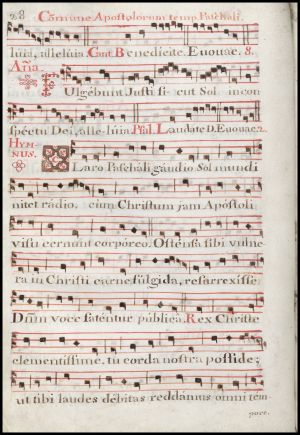 28 Comune Apostolorum temp. Paschali.
luia, alleluia. Cant. Benedicite. Euouae. 8.
Aña.
Ulgebunt Justi si- cut Sol in con
spectu Dei, alle-luia. Psal. Laudate D. Euouae. 2.
HYM-
NUS.
Laro Paschali gaudio Sol mundi
nitet radio, cum Christum jam Apostoli
visu cernunt corporeo. Ostensa sibi vulne-
ra in Christi carne fulgida, resurrexisse
Dñm voce fatentur publica. Rex Christe
clementissime, tu corda nostra posside;
ut tibi laudes debitas reddamus omni tem
pore.